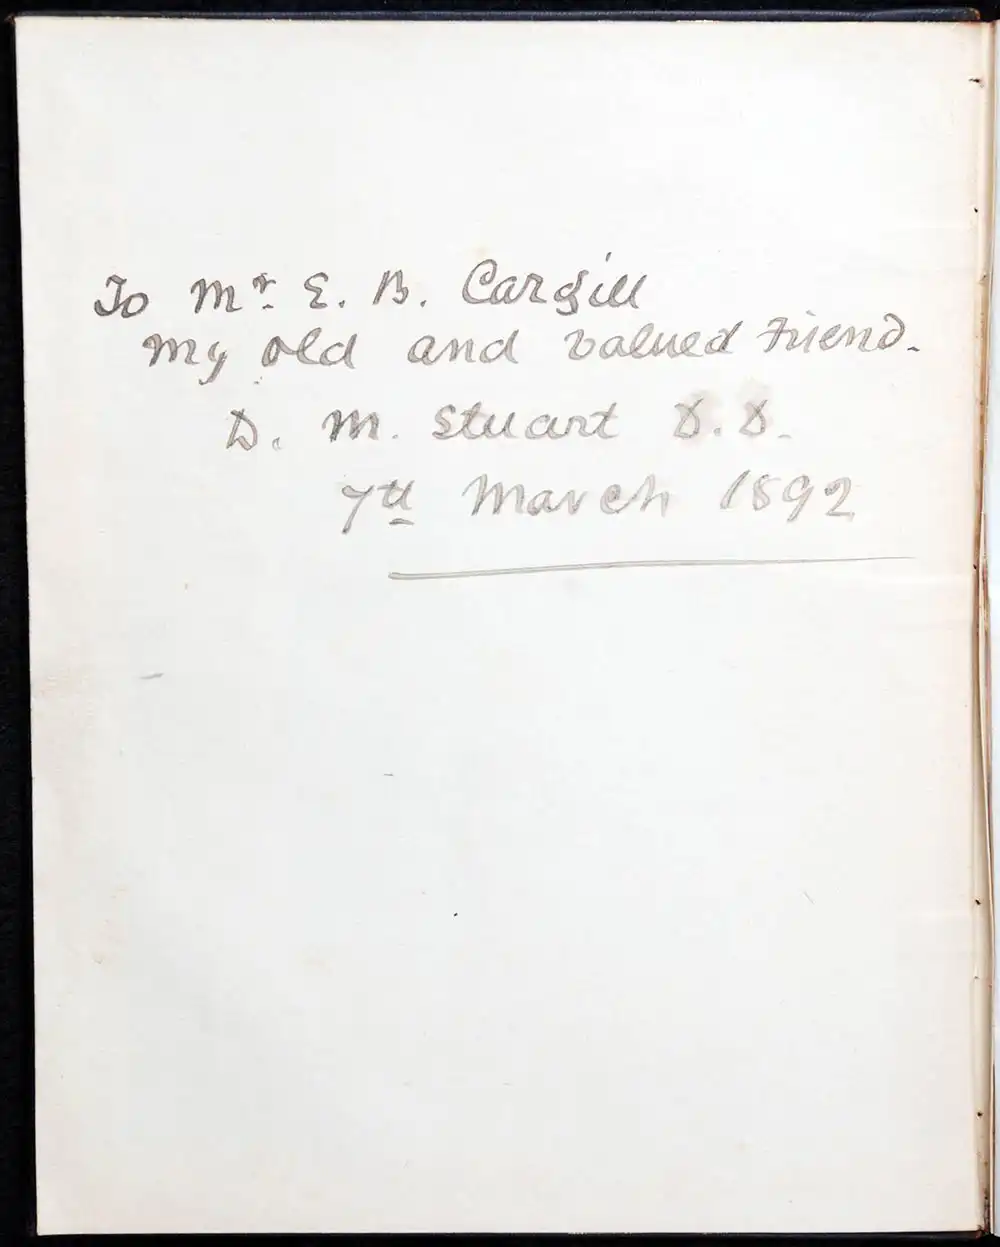 To Mr. E. B. Cargill
my old and valued Friend.
D. M. Stuart D.D.
7th March 1892